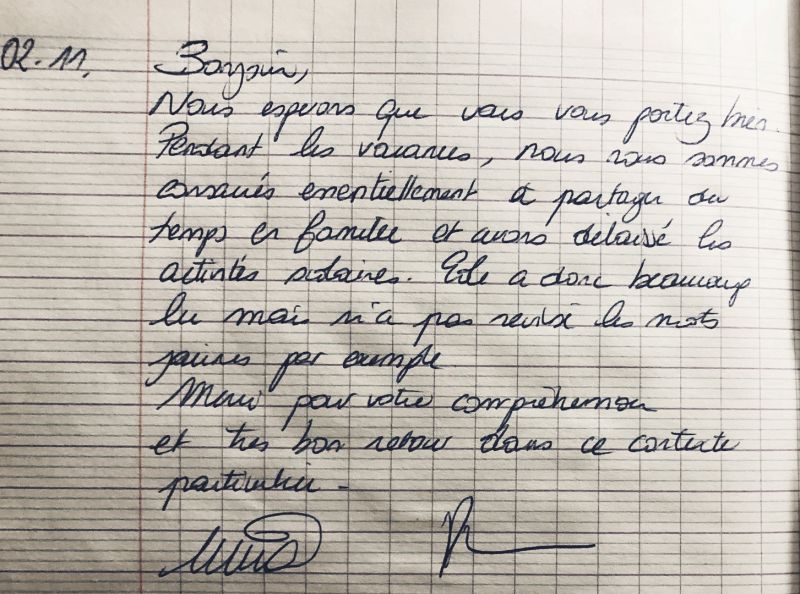 02.11. Bonjour,
Nous esperons que vous vous portez bien.
Pendant les vacances, nous nous sommes
consacrés essentiellement à partager du
temps en famille et avons délaissé les
activités scolaires. Elle a donc beaucoup
lu mais n'a pas révisé les mots
jaunes par exemple
Merci pour votre compréhension
et très bon retour dans ce contexte
particulier.